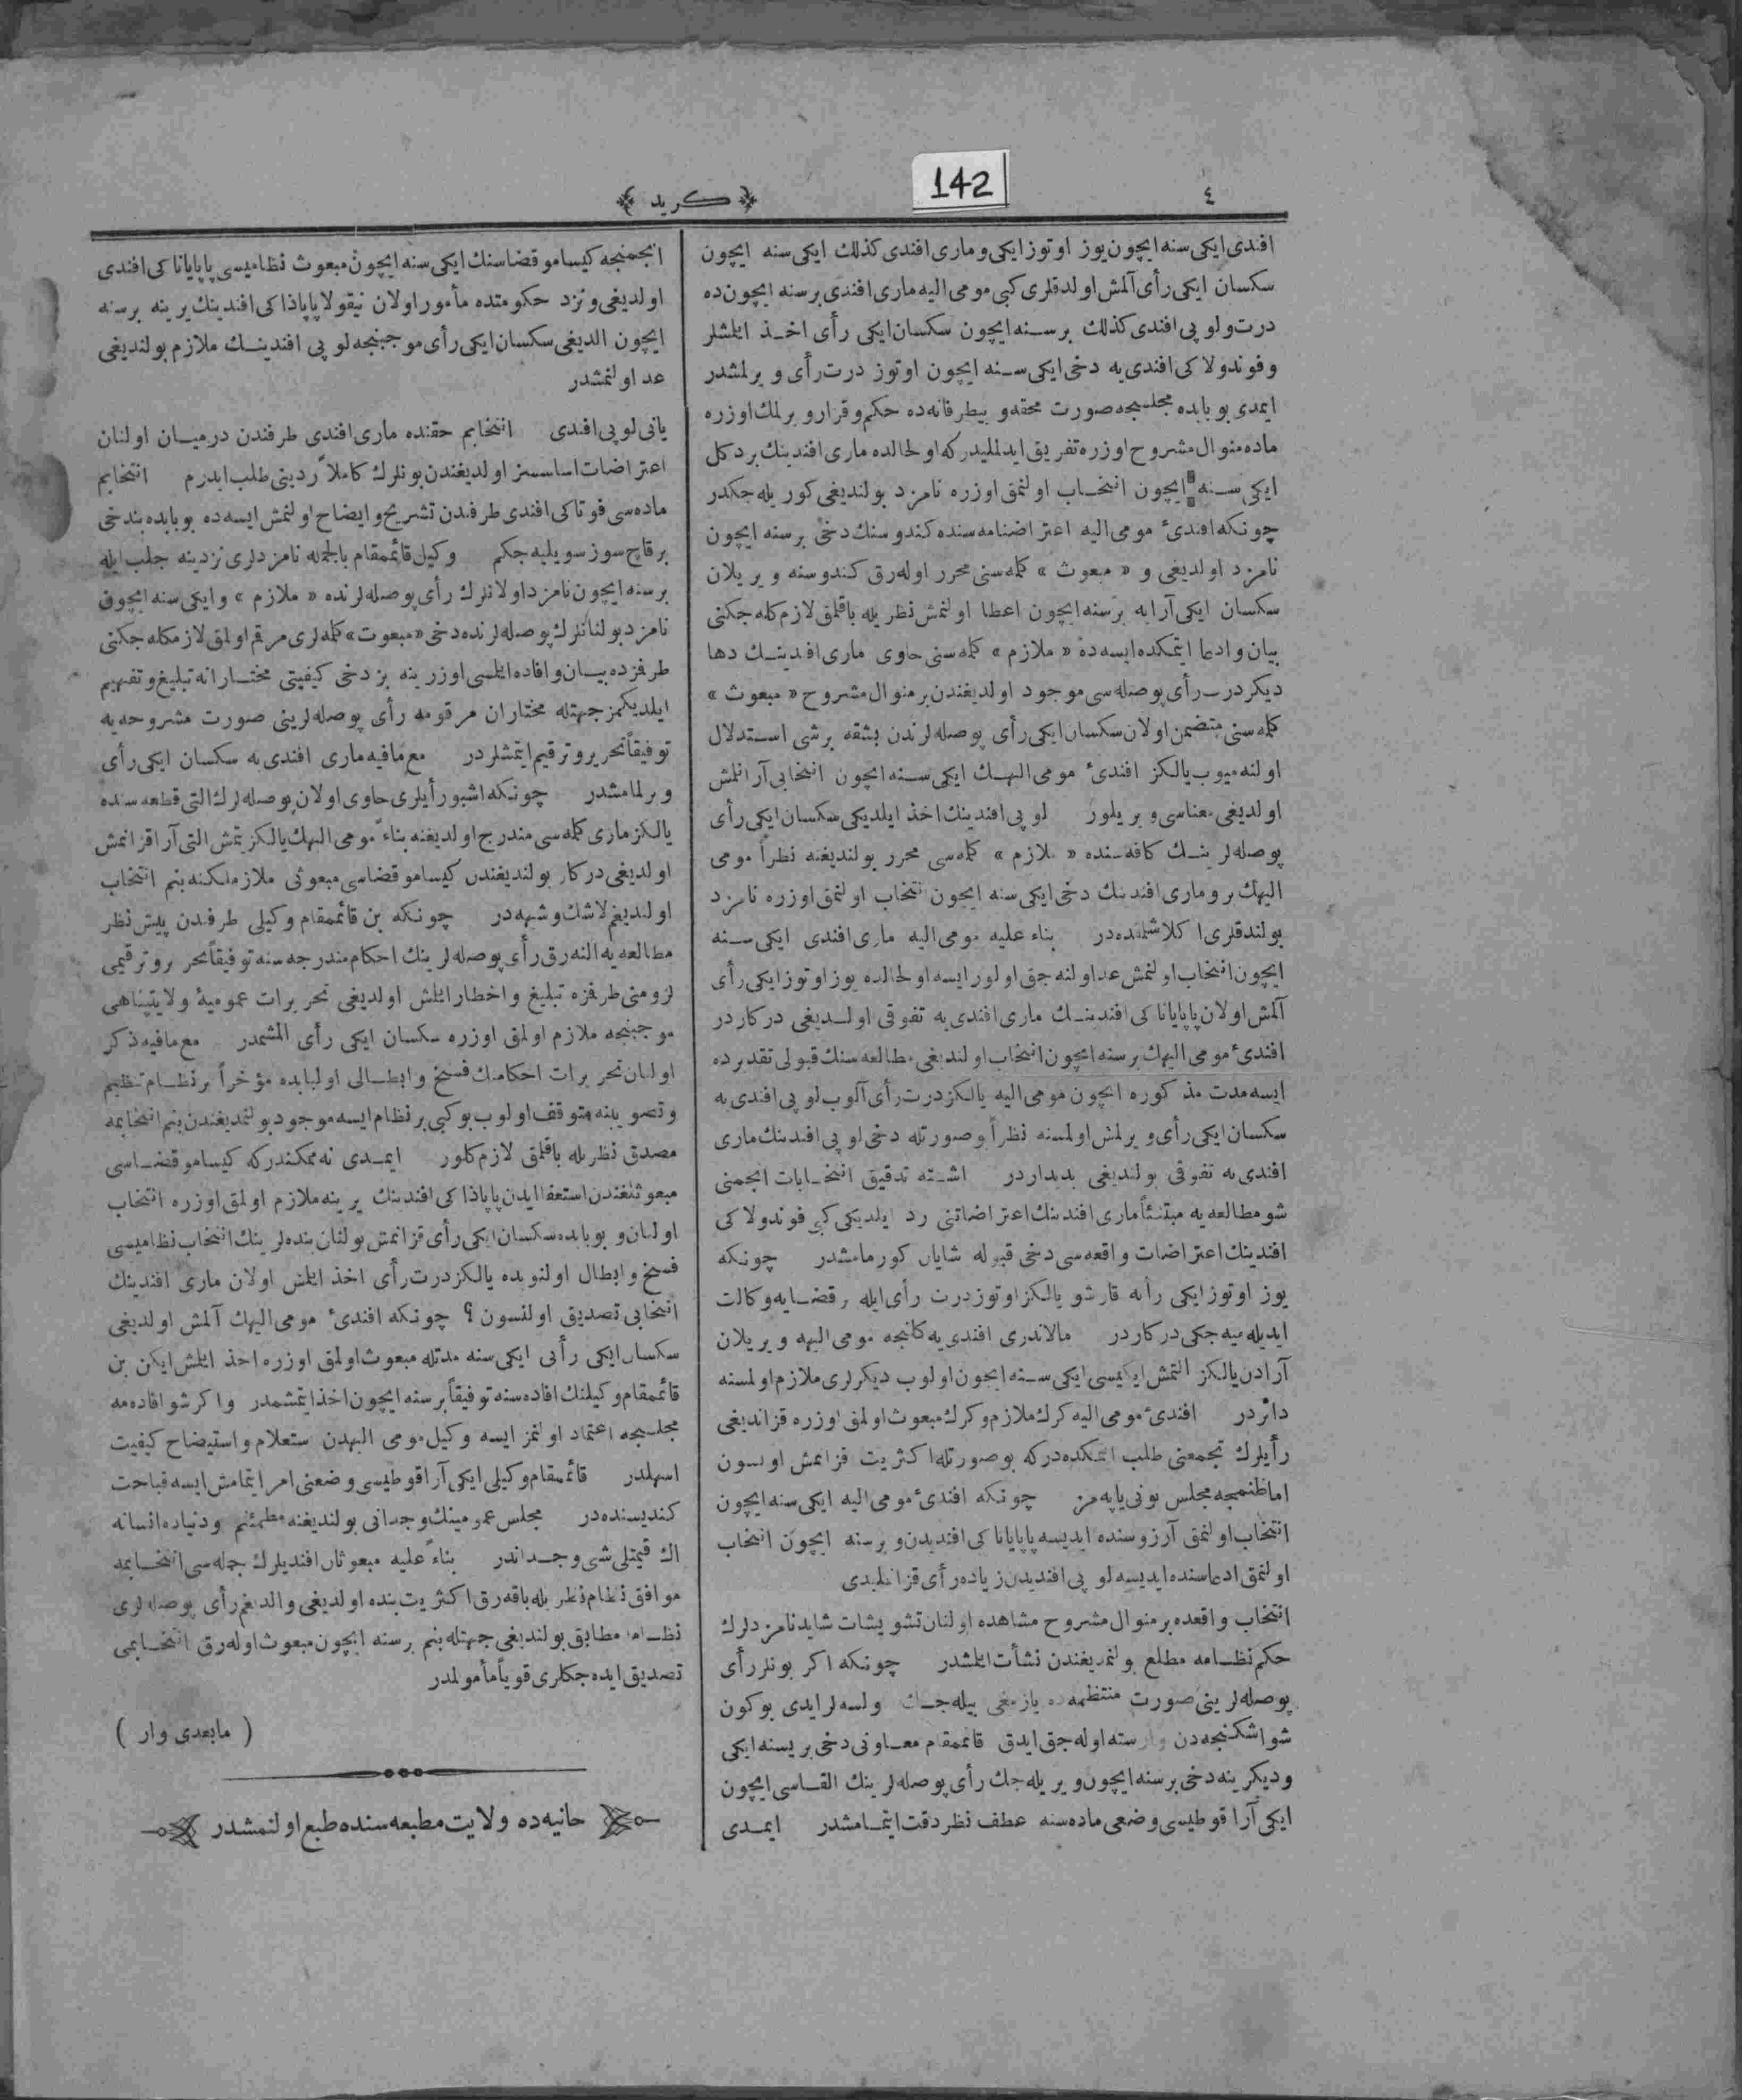 ٤
142
﴿ كريد ﴾
افندى ايكى سنه ايچون يوز اوتوز ايكى و مارى افندى كذلك ايكى سنه ايچون
سكسان ايكى رأى آلمش اولدقلرى كبى مومى اليه مارى افندى برسنه ايچون ده
درت و لوپى افندى كذلك برسنه ايچون سكسان ايكى رأى اخذ ايتمشلر
و فوندولاكى افندى يه دخى ايكى سنه ايچون اوتوز درت رأى ويرلمشدر
ايمدى بو بابده مجلسجه صورت محقه و بيطرفانه ده حكم و قرار ويرلمك اوزره
ماده منوال مشروح اوزره تفريق ايدلمليدركه اولحالده مارى افندينك بر دكل
ايكى سنه ايچون انتخاب اولنمق اوزره نامزد بولنديغى كوريله جكدر
چونكه افندئ مومى اليه اعتراضنامه سنده كندوسنك دخى برسنه ايچون
نامزد اولديغى و « مبعوث » كله سنى محرر اوله رق كندوسنه ويريلان
سكسان ايكى آرايه برسنه ايچون اعطا اولنمش نظريله باقلمق لازم كله جكنى
بيان و ادعا ايتمكده ايسه ده « ملازم » كله سنى حاوى مارى افندينك دها
ديكر درت رأى پوصله سى موجود اولديغندن بر منوال مشروح « مبعوث »
كله سنى متضمن اولان سكسان ايكى رأى پوصله لرندن بشقه برشى استدلال
اولنه ميوب يالكز افندئ مومى اليهك ايكى سنه ايچون انتخابى آرانلمش
اولديغى معناسى ويريلور لوپى افندينك اخذ ايلديكى سكسان ايكى رأى
پوصله لرينك كافه سنده « ملازم » كله سى محرر بولنديغنه نظراً مومى
اليهك و مارى افندينك دخى ايكى سنه ايچون انتخاب اولنمق اوزره نامزد
بولندقلرى اكلاشلمقده در بناء عليه مومى اليه مارى افندى ايكى سنه
ايچون انتخاب اولنمش عد اولنه جق اولور ايسه اولحالده يوز اوتوز ايكى رأى
آلمش اولان پاپاياناكى افندينك مارى افندى يه تفوقى اولديغى دركاردر
افندئ مومى اليهك برسنه ايچون انتخاب اولنديغى مطالعه سنك قبولى تقديرده
ايسه مدت مذكوره ايچون مومى اليه يالكز درت رأى آلوب لوپى افندى يه
سكسان ايكى رأى ويرلمش اولمسنه نظراً بو صورتله دخى لوپى افندينك مارى
افندى يه تفوقى بولنديغى بديداردر اشته تدقيق انتخابات انجمنى
شو مطالعه يه مبتنئاً مارى افندينك اعتراضاتنى رد ايلديكى كبى فوندولاكى
افندينك اعتراضات واقعه سى دخى قبوله شايان كورمامشدر چونكه
يوز اوتوز ايكى رأيه قارشو يالكز اوتوز درت رأى ايله بر قضايه وكالت
ايديله ميه جكى دركاردر مالاندرى افندى يه كلنجه مومى اليهه ويريلان
آرادن يالكز التمش ايكيسى ايكى سنه ايچون اولوب ديكرلرى ملازم اولمسنه
دائردر افندئ مومى اليه كرك ملازم و كرك مبعوث اولمق اوزره قزانديغى
رأيلرك تجمعنى طلب ايتمكده دركه بو صورتله اكثريت قزانمش اولسون
اما ظنمجه مجلس بونى ياپه مز چونكه افندئ مومى اليه ايكى سنه ايچون
انتخاب اولنمق آرزوسنده ايديسه پاپاياناكى افنديدن و برسنه ايچون انتخاب
اولنمق ادعاسنده ايديسه لوپى افنديدن زياده رأى قزانملىيدى
انتخاب واقعده بر منوال مشروح مشاهده اولنان تشويشات شايد نامزدلرك
حكم نظامه مطلع بولنمديغندن نشأت ايتمشدر چونكه اكر بونلر رأى
پوصله لرينى صورت منتظمه ده يازمغى بيله جك اولسه لر ايدى بوكون
شو اشكنجه دن وارسته اوله جق ايدق قائممقام معاونى دخى بريسنه ايكى
و ديكرينه دخى برسنه ايچون ويريله جك رأى پوصله لرينك القاسى ايچون
ايكى آرا قوطيسى وضعى ماده سنه عطف نظر دقت ايتمامشدر ايمدى
انجمنجه كيسامو قضاسنك ايكى سنه ايچون مبعوث نظاميسى پاپاياناكى افندى
اولديغى و نزد حكومتده مأمور اولان نيقولا پاپاداكى افندينك يرينه برسنه
ايچون الديغى سكسان ايكى رأى موجبنجه لوپى افندينك ملازم بولنديغى
عد اولنمشدر
يانى لوپى افندى انتخابم حقنده مارى افندى طرفندن درميان اولنان
اعتراضات اساسسز اولديغندن بونلرك كاملاً ردينى طلب ايدرم انتخابم
ماده سى فوتاكى افندى طرفندن تشريح و ايضاح اولنمش ايسه ده بو بابده بن دخى
برقاچ سوز سويليه جكم وكيل قائممقام بالجمله نامزدلرى نزدينه جلب ايله
برسنه ايچون نامزد اولانلرك رأى پوصله لرنده « ملازم » و ايكى سنه ايچون
نامزد بولنانلرك پوصله لرنده دخى « مبعوث » كله لرى مرقم اولمق لازمكله جكنى
طرفمزه بيان و افاده ايتمسى اوزرينه بز دخى كيفيتى مختارانه تبليغ و تفهيم
ايلديكمز جهتله مختاران مرقومه رأى پوصله لرينى صورت مشروحه يه
توفيقاً تحرير و ترقيم ايتمشلردر مع مافيه مارى افندى يه سكسان ايكى رأى
ويرلمامشدر چونكه اشبو رأيلرى حاوى اولان پوصله لرك التى قطعه سنده
يالكز مارى كله سى مندرج اولديغنه بناءً مومى اليهك يالكز يتمش التى آرا قزانمش
اولديغى دركار بولنديغندن كيسامو قضاسى مبعوثى ملازملكنه بنم انتخاب
اولنديغم لاشك و شبهه در چونكه بن قائممقام وكيلى طرفندن پيش نظر
مطالعه يه النه رق رأى پوصله لرينك احكام مندرجه سنه توفيقاً تحرير و ترقيمى
لزومنى طرفمزه تبليغ و اخطار ايتمش اولديغى تحريرات عموميهٔ ولايتپناهى
موجبنجه ملازم اولمق اوزره سكسان ايكى رأى المشمدر مع مافيه ذكر
اولنان تحريرات احكامنك فسخ و ابطالى اولبابده مؤخراً بر نظام تنظيم
و تصويبنه متوقف اولوب بو كبى بر نظام ايسه موجود بولنمديغندن بنم انتخابمه
مصدق نظريله باقلمق لازم كلور ايمدى نه ممكندركه كيسامو قضاسى
مبعوثلغندن استعفا ايدن پاپاداكى افندينك يرينه ملازم اولمق اوزره انتخاب
اولنان و بو بابده سكسان ايكى رأى قزانمش بولنان بنده لرينك انتخاب نظاميسى
فسخ و ابطال اولنوبده يالكز درت رأى اخذ ايتمش اولان مارى افندينك
انتخابى تصديق اولنسون ؟ چونكه افندئ مومى اليهك آلمش اولديغى
سكسان ايكى رأيى ايكى سنه مدتله مبعوث اولمق اوزره اخذ ايتمش ايكن بن
قائممقام وكيلنك افاده سنه توفيقاً برسنه ايچون اخذ ايتمشمدر و اكر شو افاده مه
مجلسجه اعتماد اولنمز ايسه وكيل مومى اليهدن استعلام و استيضاح كيفيت
اسهلدر قائممقام وكيلى ايكى آرا قوطيسى وضعنى امر ايتمامش ايسه قباحت
كنديسنده در مجلس عموميتك وجدانى بولنديغنه مطمئنم و دنياده انسانه
اك قيمتلى شى وجداندر بناءً عليه مبعوثان افنديلرك جمله سى انتخابمه
موافق نظام نظريله باقه رق اكثريت بنده اولديغى و الديغم رأى پوصله لرى
نظامه مطابق بولنديغى جهتله بنم برسنه ايچون مبعوث اوله رق انتخابمى
تصديق ايده جكلرى قوياً مأمولمدر
( مابعدى وار )
حانيه ده ولايت مطبعه سنده طبع اولنمشدر